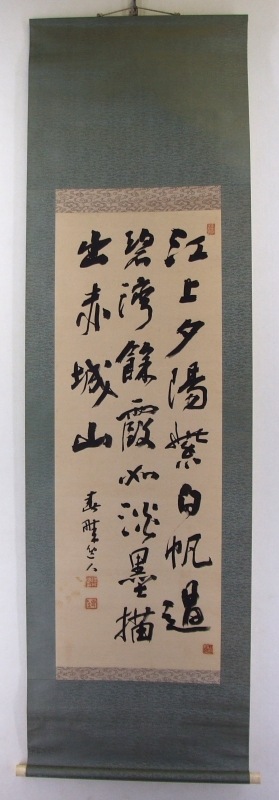 江上夕陽紫白帆過
碧湾餘霞如淡墨描
出赤城山
春畦道人